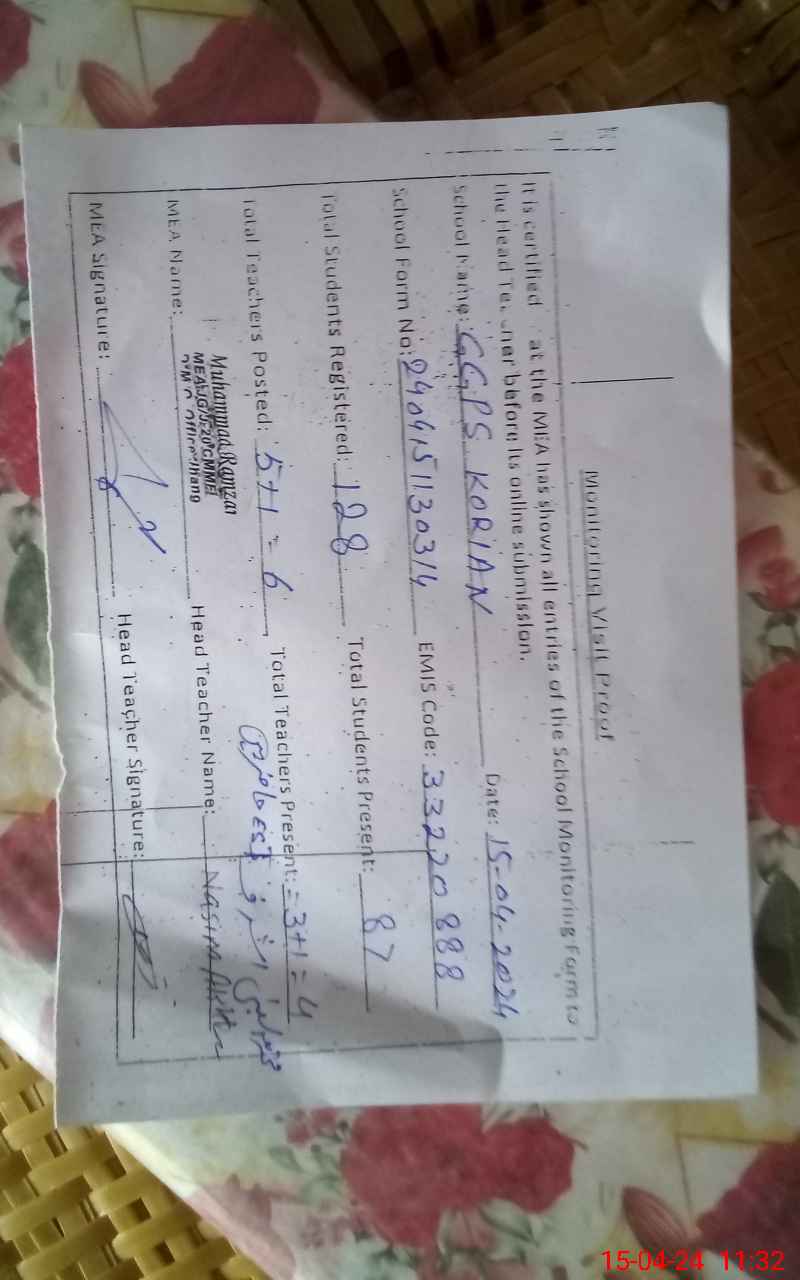 Monitoring Visit Proof
It is certified at the MEA has shown all entries of the School Monitoring Form to
the Head Teacher before its online submission.
School Name: GGPS KORIAN Date: 15-04-2024
School Form No: 2404151130314 EMIS Code: 33220888
Total Students Registered: 128 Total Students Present: 87
Total Teachers Posted: 5+1 = 6 Total Teachers Present: = 3+1 = 4
Muhammad Ramzan
MEA
MEA Name: Head Teacher Name: Nasira Akhter
MEA Signature: Head Teacher Signature:
15-04-24 11:32